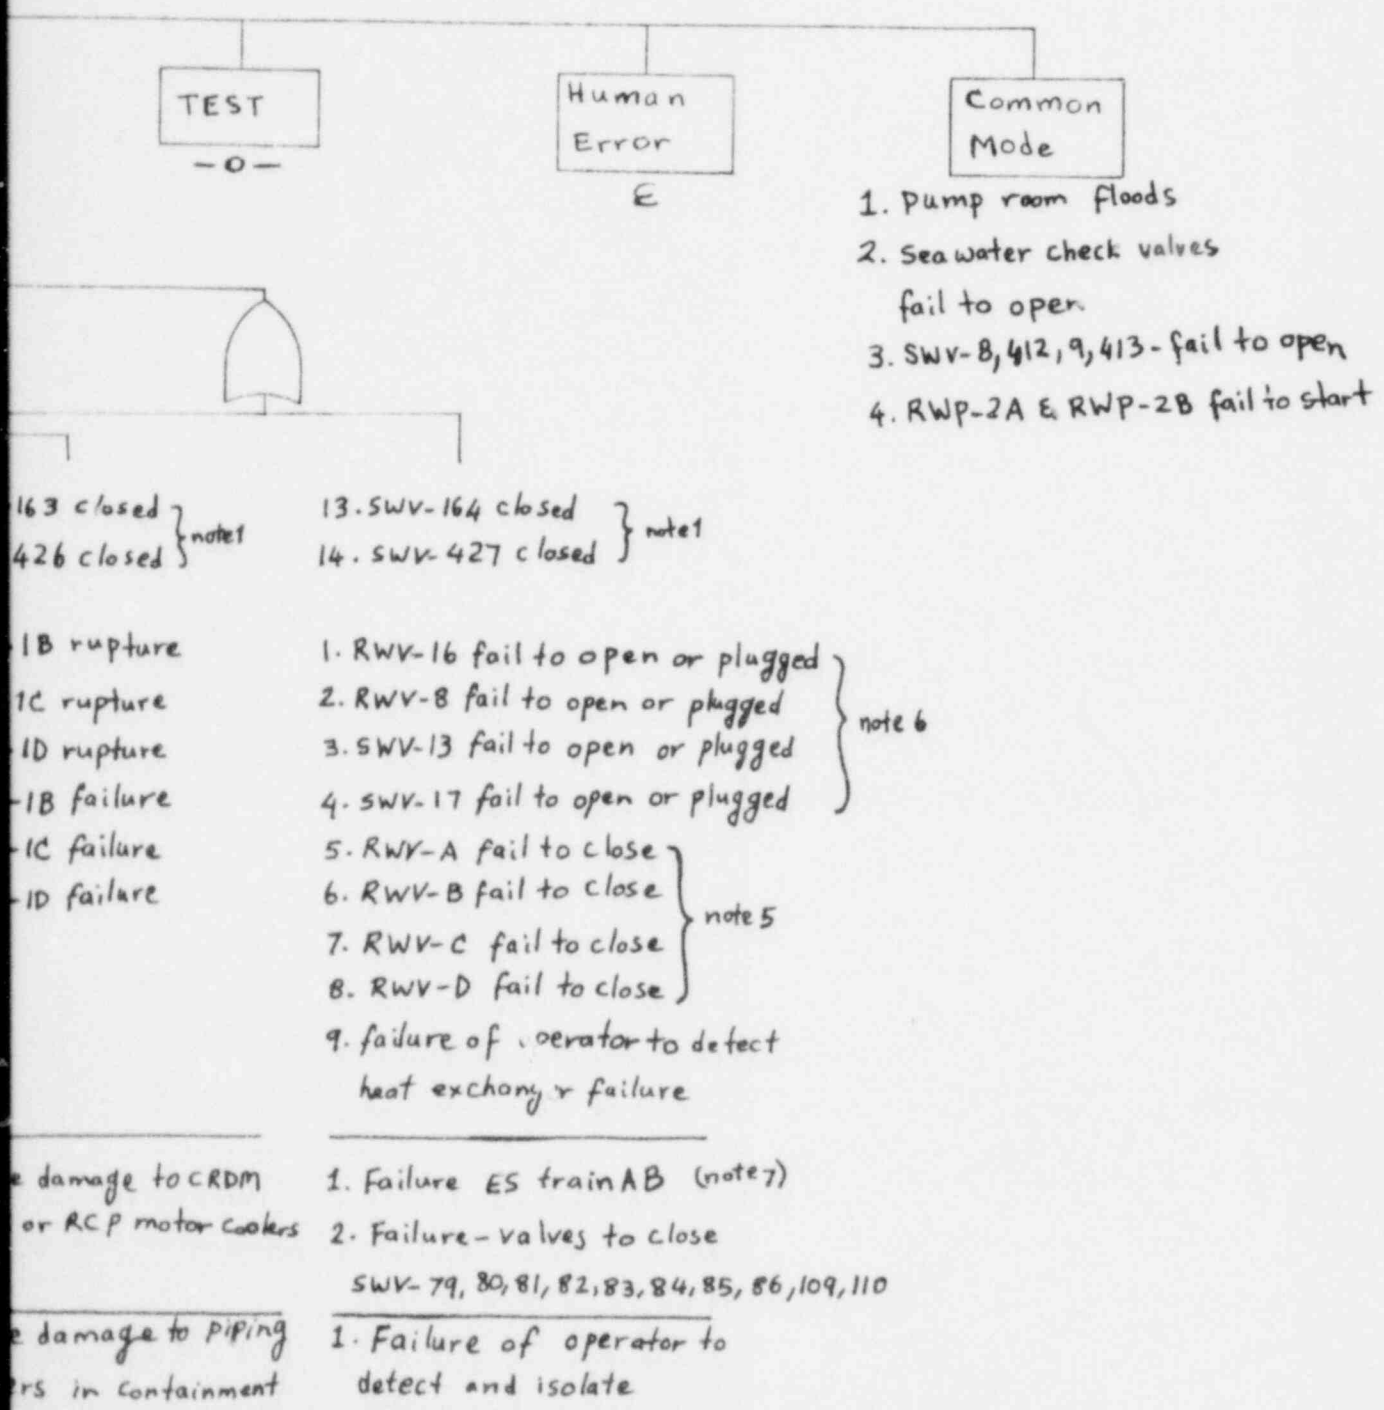 TEST
-0-
Human
Error
ε
Common
Mode
1. Pump room floods
2. Sea water check valves
fail to open
3. SWV-8,412,9,413-fail to open
4. RWP-2A & RWP-2B fail to start
163 closed
426 closed
note1
13. SWV-164 closed
14. SWV-427 closed
note1
1B rupture
1C rupture
1D rupture
-1B failure
-1C failure
-1D failure
1. RWV-16 fail to open or plugged
2. RWV-8 fail to open or plugged
3. SWV-13 fail to open or plugged
4. SWV-17 fail to open or plugged
note 6
5. RWV-A fail to close
6. RWV-B fail to close
7. RWV-C fail to close
8. RWV-D fail to close
note 5
9. failure of erator to detect
heat exchang r failure
e damage to CRDM
or RCP motor coolers
1. Failure ES train AB (note 7)
2. Failure-valves to close
SWV-79, 80, 81, 82, 83, 84, 85, 86, 109, 110
e damage to piping
ers in containment
1. Failure of operator to
detect and isolate